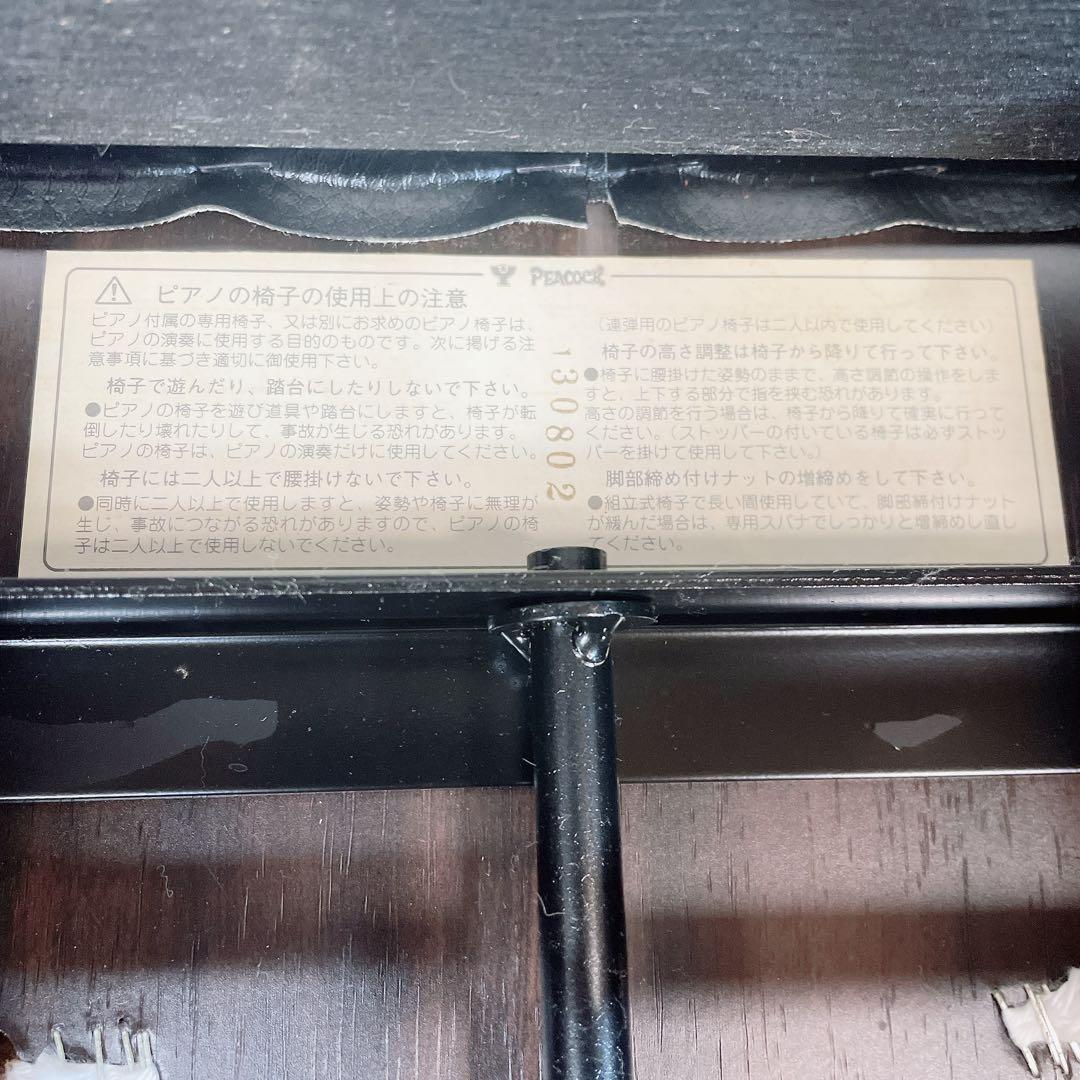 PEACOCK
ピアノの椅子の使用上の注意
ピアノ付属の専用椅子、又は別にお求めのピアノ椅子は、
ピアノの演奏に使用する目的のものです。次に掲げる注
意事項に基づき適切に御使用下さい。
椅子で遊んだり、踏台にしたりしないで下さい。
●ピアノの椅子を遊び道具や踏台にしますと、椅子が転
倒したり壊れたりして、事故が生じる恐れがあります。
ピアノの椅子は、ピアノの演奏だけに使用してください。
椅子には二人以上で腰掛けないで下さい。
●同時に二人以上で使用しますと、姿勢や椅子に無理が
生じ、事故につながる恐れがありますので、ピアノの椅
子は二人以上で使用しないでください。
130802
（連弾用のピアノ椅子は二人以内で使用してください）
椅子の高さ調整は椅子から降りて行って下さい。
●椅子に腰掛けた姿勢のままで、高さ調節の操作をしま
すと、上下する部分で指を挟む恐れがあります。
高さの調節を行う場合は、椅子から降りて確実に行って
ください。（ストッパーの付いている椅子は必ずストッ
パーを掛けて使用して下さい。）
脚部締め付けナットの増締めをして下さい。
●組立式椅子で長い間使用していて、脚部締付けナット
が緩んだ場合は、専用スパナでしっかりと増締めし直し
てください。